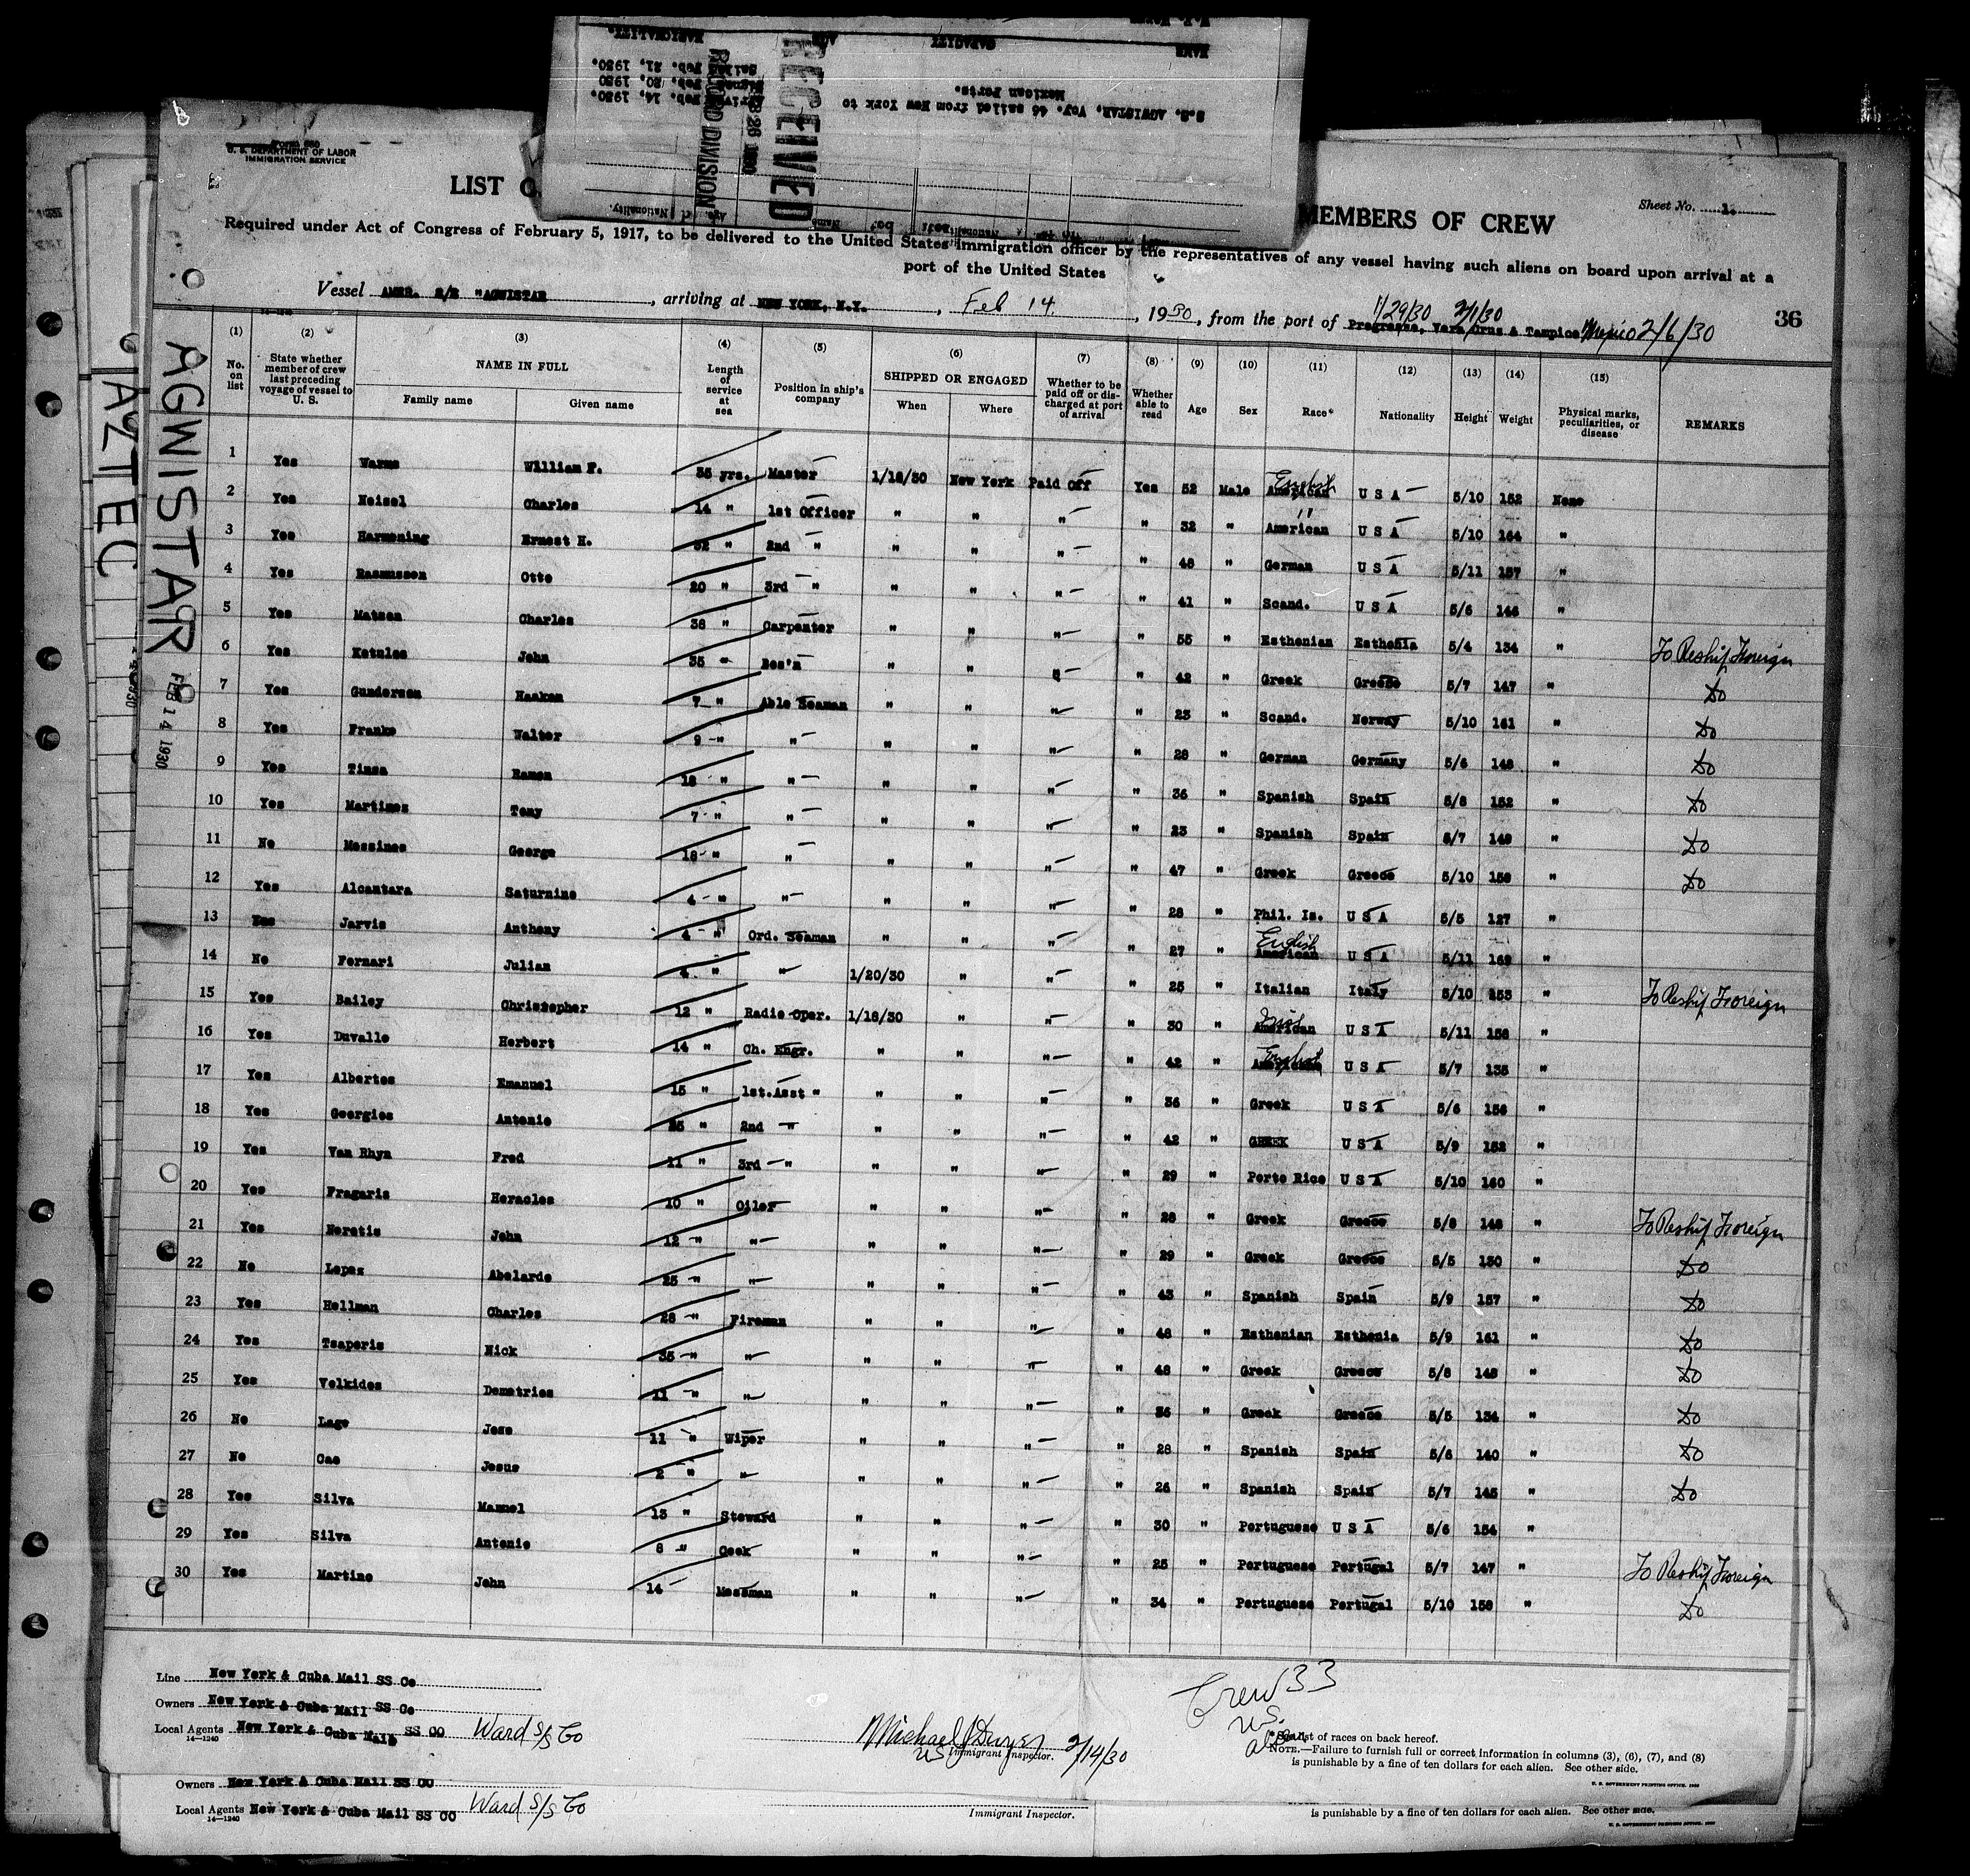 S.S. AGWISTAR, Voy. 46 sailed from New York to
Mexican Ports.
Arrived Feb. 14, 1930.
Feb. 20, 1930
Sailed Feb. 21, 1930.
NAME CAPACITY AGE NATIONALITY.
RECEIVED
FEB 26 1930
RECORD DIVISION
U. S. DEPARTMENT OF LABOR
IMMIGRATION SERVICE
LIST O
MEMBERS OF CREW
Sheet No. 1.
Required under Act of Congress of February 5, 1917, to be delivered to the United States immigration officer by the representatives of any vessel having such aliens on board upon arrival at a
port of the United States
Vessel AMER. S/S "AGWISTAR , arriving at NEW YORK, N.Y. , Feb 14. , 1930, from the port of Progresso, Vera Cruz & Tampico Mexico 2/6/30
1/29/30 2/1/30
36
AZTEC
AGWISTAR
FEB 14 1930
(1) (2) (3) (4) (5) (6) (7) (8) (9) (10) (11) (12) (13) (14) (15)
No. on list
State whether member of crew last preceding voyage of vessel to U. S.
NAME IN FULL
Family name Given name
Length of service at sea
Position in ship's company
SHIPPED OR ENGAGED
When Where
Whether to be paid off or discharged at port of arrival
Whether able to read
Age Sex Race* Nationality Height Weight
Physical marks, peculiarities, or disease
REMARKS
1 Yes Warms William F. 35 yrs. Master 1/18/30 New York Paid Off Yes 52 Male American English U S A 5/10 152 None
2 Yes Neisel Charles 14 " 1st Officer " " " " 32 " American " U S A 5/10 164 "
3 Yes Harmening Ernest H. 32 " 2nd " " " " " 48 " German U S A 5/11 157 "
4 Yes Rasmussen Otto 20 " 3rd " " " " " 41 " Scand. U S A 5/6 146 "
5 Yes Matson Charles 38 " Carpenter " " " " 55 " Esthonian Esthonia 5/4 134 " To Reship Foreign
6 Yes Katules John 35 " Bos'n " " " " 42 " Greek Greece 5/7 147 " Do
7 Yes Gunderson Haakon 7 " Able Seaman " " " " 23 " Scand. Norway 5/10 161 " Do
8 Yes Franke Walter 9 " " " " " " 28 " German Germany 5/6 148 " Do
9 Yes Tinza Ramon 18 " " " " " " 36 " Spanish Spain 5/8 152 " Do
10 Yes Martinez Tony 7 " " " " " " 23 " Spanish Spain 5/7 149 " Do
11 No Messines George 18 " " " " " " 47 " Greek Greece 5/10 158 " Do
12 Yes Alcantara Saturnine 4 " " " " " " 28 " Phil. Is. U S A 5/5 127 "
13 Yes Jarvis Anthony 4 " Ord. Seaman " " " " 27 " American English U S A 5/11 169 "
14 No Fornari Julian 4 " " 1/20/30 " " " 25 " Italian Italy 5/10 153 " To Reship Foreign
15 Yes Bailey Christopher 12 " Radio Oper. 1/18/30 " " " 30 " American Irish U S A 5/11 158 "
16 Yes Duvalle Herbert 14 " Ch. Engr. " " " " 42 " American English U S A 5/7 135 "
17 Yes Albertos Emanuel 15 " 1st.Asst " " " " " 36 " Greek U S A 5/6 156 "
18 Yes Georgios Antonio 25 " 2nd " " " " " 42 " GREEK U S A 5/9 152 "
19 Yes Van Rhyn Fred 11 " 3rd " " " " " 29 " Porto Rico U S A 5/10 160 "
20 Yes Fragaris Heracles 10 " Oiler " " " " 28 " Greek Greece 5/8 148 " To Reship Foreign
21 Yes Neratis John 12 " " " " " " 29 " Greek Greece 5/5 130 " Do
22 No Lopez Abelardo 25 " " " " " " 43 " Spanish Spain 5/9 157 " Do
23 Yes Hellman Charles 28 " Fireman " " " " 48 " Esthonian Esthonia 5/9 161 " Do
24 Yes Tsaperis Nick 35 " " " " " " 48 " Greek Greece 5/8 148 " Do
25 Yes Velkides Demetrios 11 " " " " " " 36 " Greek Greece 5/5 134 " Do
26 No Lago Jose 11 " Wiper " " " " 28 " Spanish Spain 5/6 140 " Do
27 No Cao Jesus 2 " " " " " " 26 " Spanish Spain 5/7 145 " Do
28 Yes Silva Manuel 13 " Steward " " " " 30 " Portuguese U S A 5/6 154 "
29 Yes Silva Antonio 8 " Cook " " " " 25 " Portuguese Portugal 5/7 147 " To Reship Foreign
30 Yes Martino John 14 Messman " " " " 34 " Portuguese Portugal 5/10 159 " Do
Line New York & Cuba Mail SS Co
Owners New York & Cuba Mail SS Co
Local Agents New York & Cuba Mail SS CO Ward S/S Co
14—1240
Michael J Dwyer 2/14/30
US Immigrant Inspector.
Crew 33
U.S.
*See list of races on back hereof.
NOTE.—Failure to furnish full or correct information in columns (3), (6), (7), and (8)
is punishable by a fine of ten dollars for each alien. See other side.
U. S. GOVERNMENT PRINTING OFFICE
Owners New York & Cuba Mail SS CO
Local Agents New York & Cuba Mail SS CO Ward S/S Co
14—1240
Immigrant Inspector.
is punishable by a fine of ten dollars for each alien. See other side.
U. S. GOVERNMENT PRINTING OFFICE